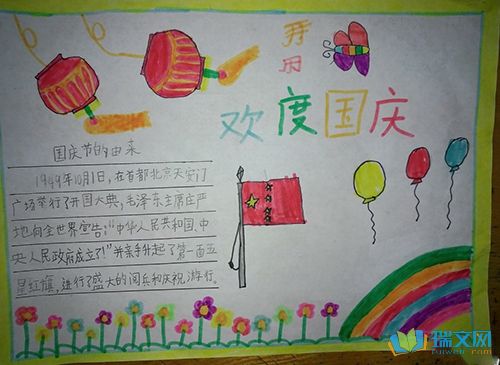 欢度国庆
国庆节的由来
1949年10月1日,在首都北京天安门
广场举行了开国大典,毛泽东主席庄严
地向全世界宣告:“中华人民共和国,中
央人民政府成立了!”并亲手升起了第一面五
星红旗,进行了盛大的阅兵和庆祝游行。
瑞文网
ruiwen.com